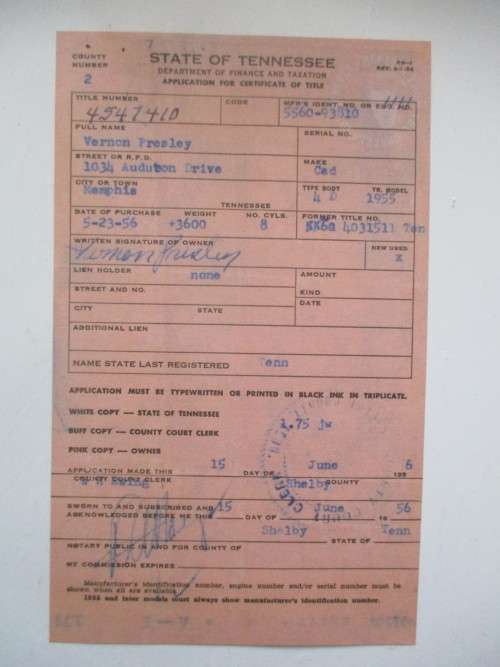 COUNTY
NUMBER
2
STATE OF TENNESSEE
DEPARTMENT OF FINANCE AND TAXATION
APPLICATION FOR CERTIFICATE OF TITLE
TITLE NUMBER
4547410
CODE
MFR'S IDENT. NO. OR ENG. NO.
5560-93810
FULL NAME
Vernon Presley
SERIAL NO.
STREET OR R.F.D.
1034 Audubon Drive
MAKE
Cad
CITY OR TOWN
Memphis
TENNESSEE
TYPE BODY
4 D
YR. MODEL
1955
DATE OF PURCHASE WEIGHT NO. CYLS.
5-23-56 +3600 8
FORMER TITLE NO.
4031511 Ten
WRITTEN SIGNATURE OF OWNER
Vernon Presley
NEW USED
X
LIEN HOLDER
none
AMOUNT
STREET AND NO.
KIND
DATE
CITY STATE
ADDITIONAL LIEN
NAME STATE LAST REGISTERED Tenn
APPLICATION MUST BE TYPEWRITTEN OR PRINTED IN BLACK INK IN TRIPLICATE.
WHITE COPY — STATE OF TENNESSEE
BUFF COPY — COUNTY COURT CLERK
1.75 jw
PINK COPY — OWNER
APPLICATION MADE THIS 15 DAY OF June 195 6
COUNTY COURT CLERK Shelby COUNTY
SWORN TO AND SUBSCRIBED AND
ACKNOWLEDGED BEFORE ME THIS 15 DAY OF June 19 56
Shelby Tenn
NOTARY PUBLIC IN AND FOR COUNTY OF STATE OF
MY COMMISSION EXPIRES
Manufacturer's identification number, engine number and/or serial number must be
shown when all are available.
1955 and later models must always show manufacturer's identification number.